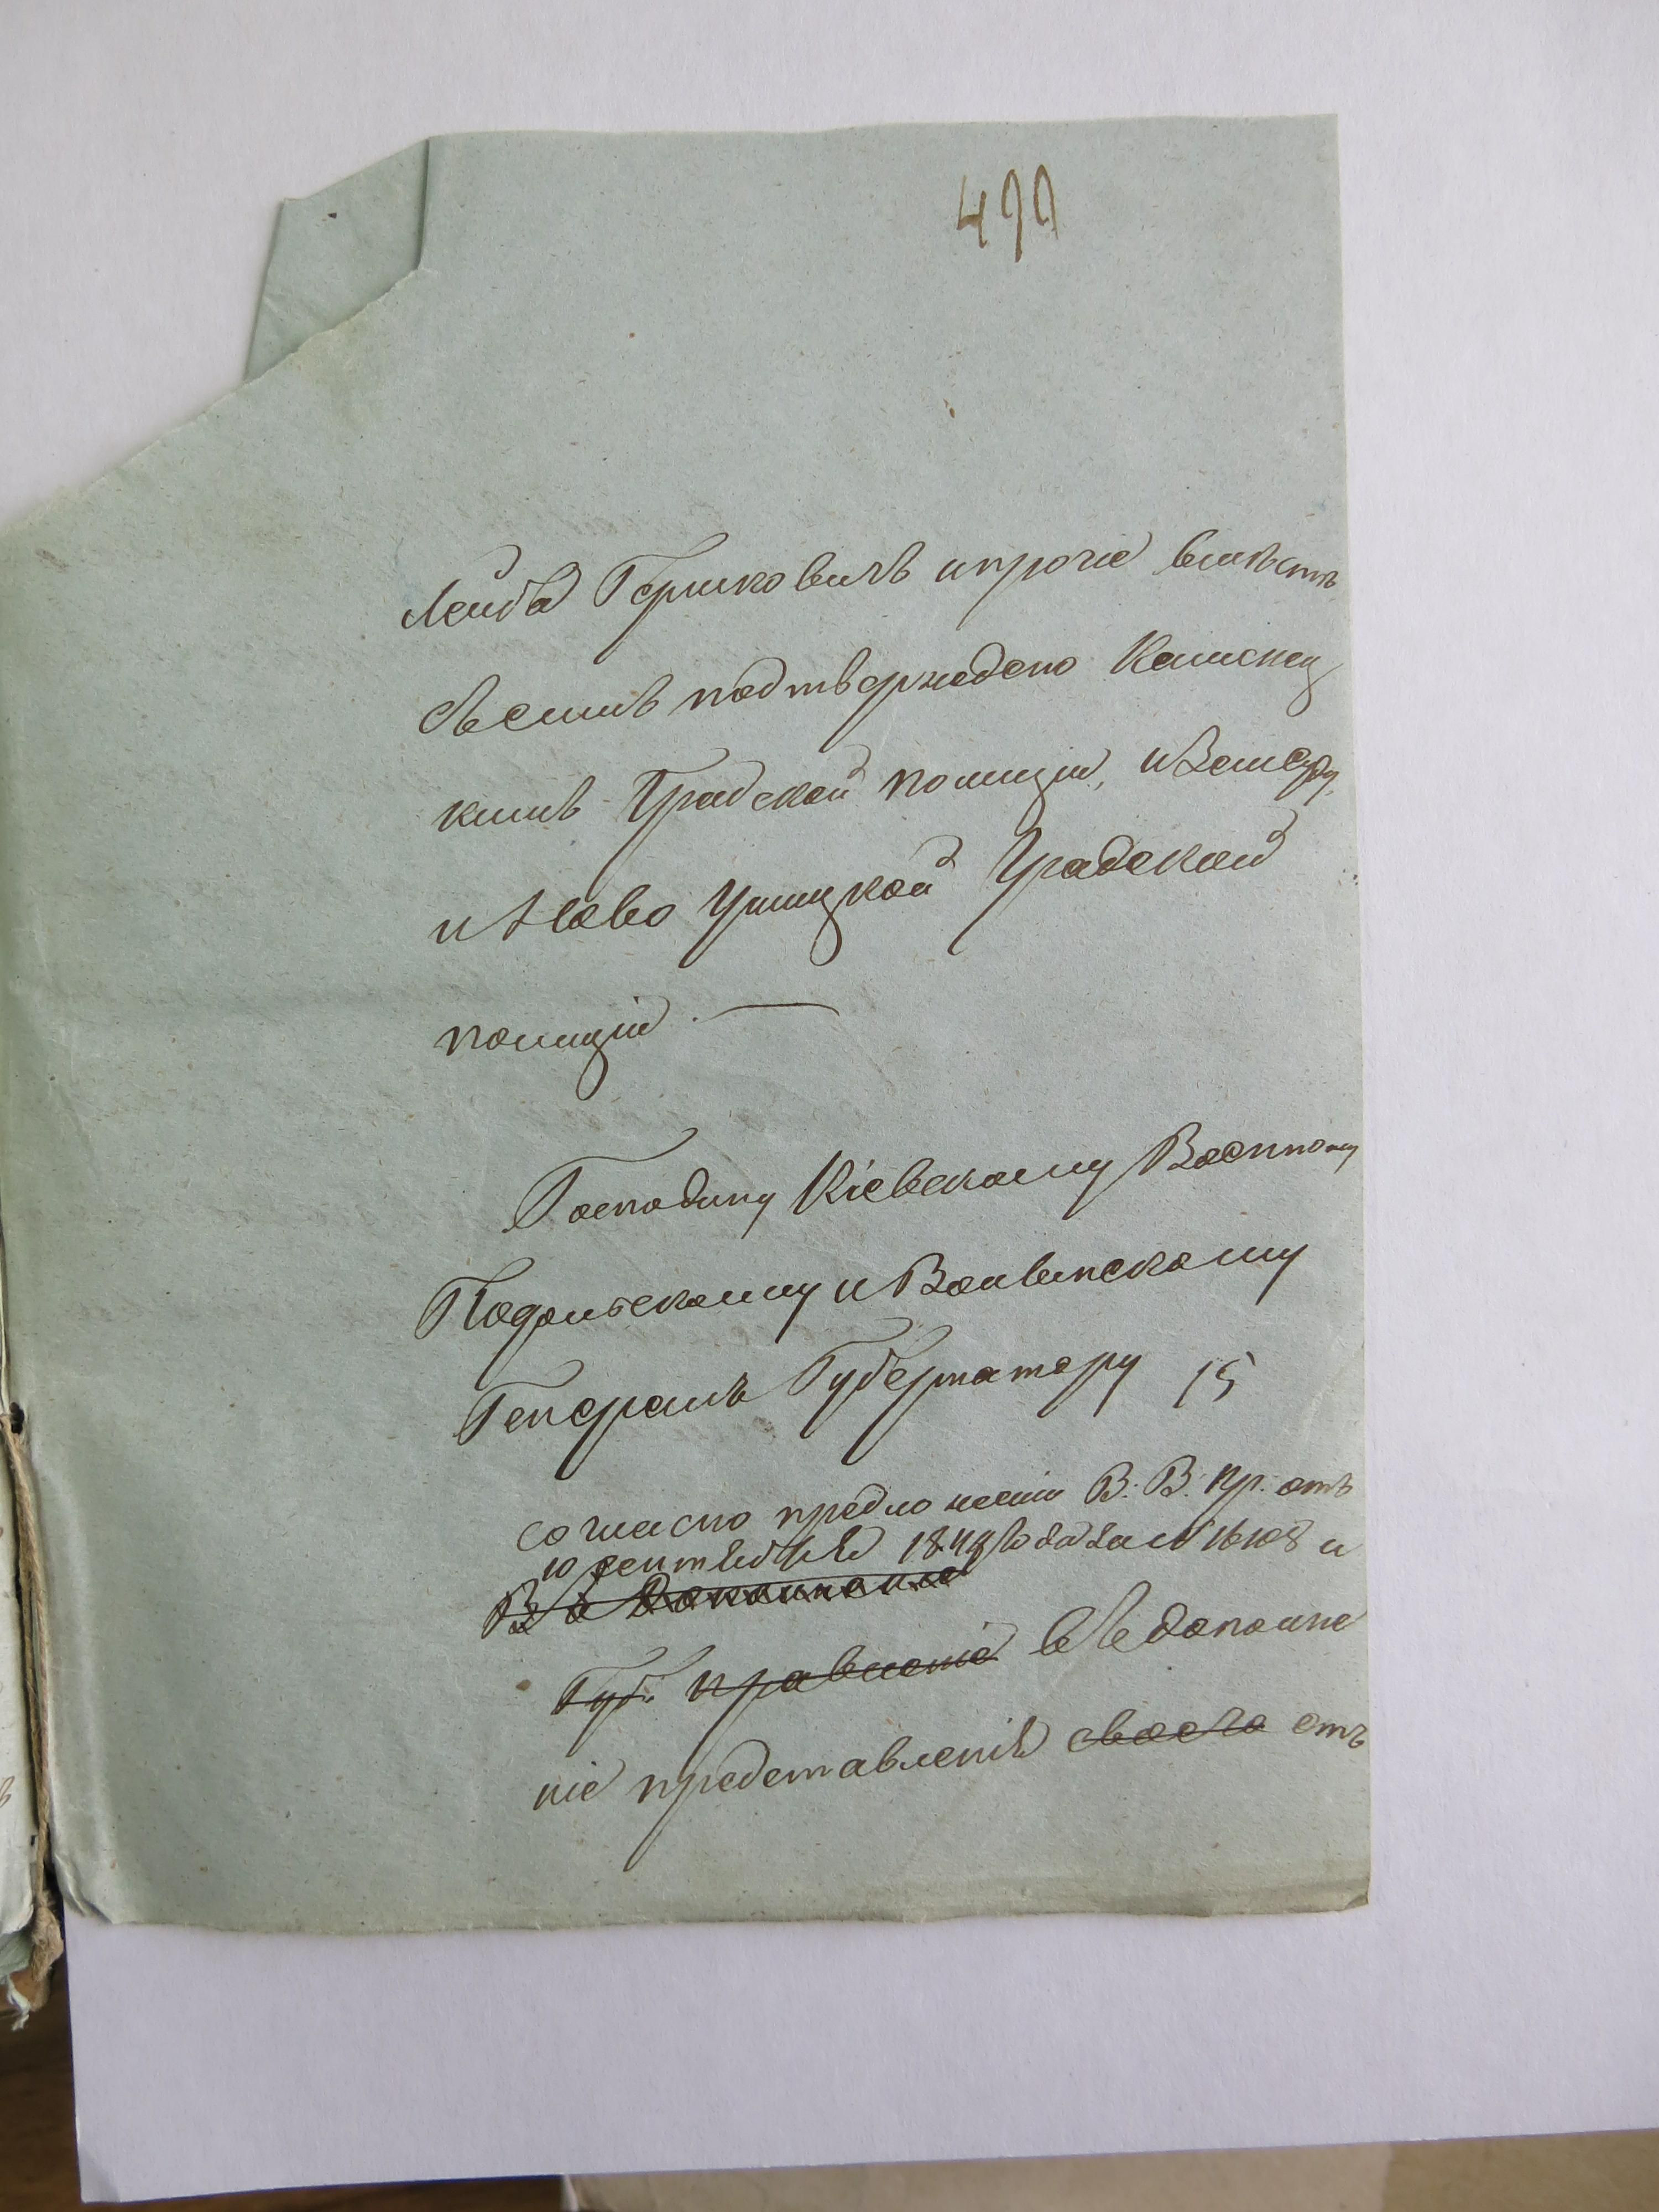 499
Лейба Гершковичъ и прочіе вмѣстѣ
съ симъ подтверждено Каменец
кимъ Градской полиціи, и Земскому
и Ново Ушицкой Градской
полиціи. —
Господину Кіевскому Военному
Подольскому и Волынскому
Генералъ Губернатору 15
согласно предложенію В. В. Пр. отъ
10 сентября 1848 года за № 16108 и
Въ дополненіе
Губ. правленіе въ дополне
ніе представленія своего отъ